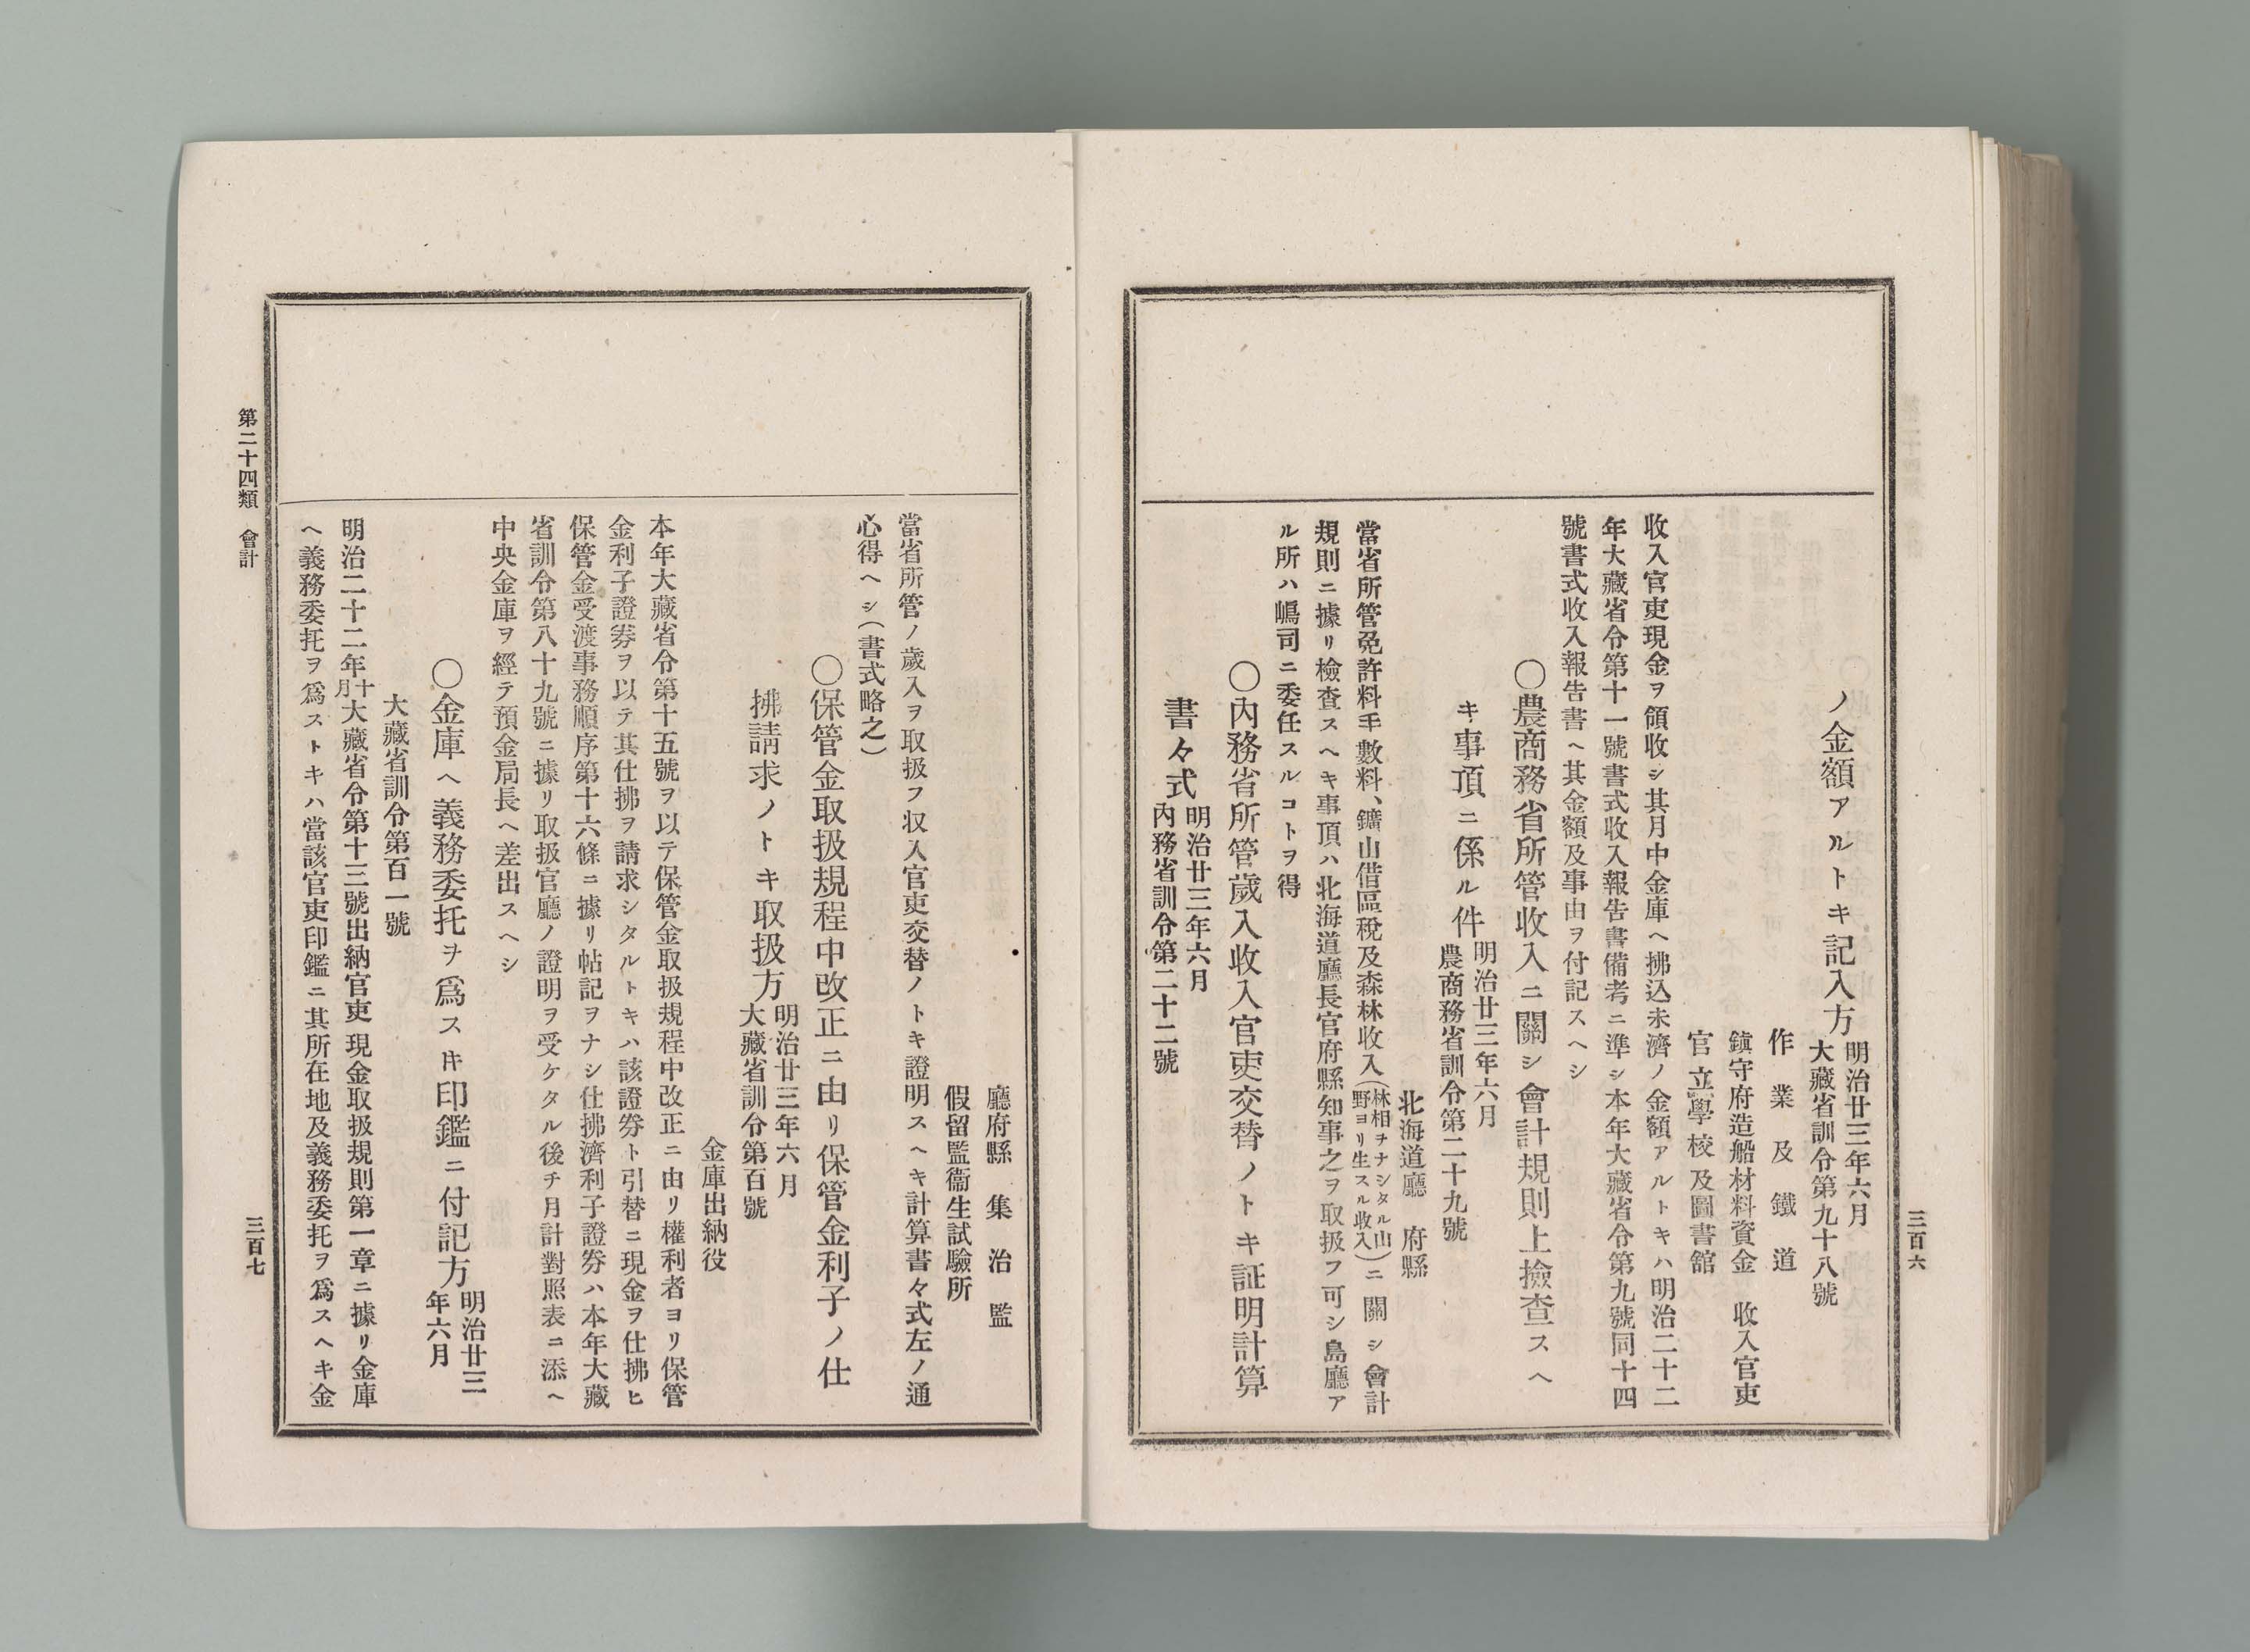 三百六
ノ金額アルトキ記入方 明治廿三年六月 大藏省訓令第九十八號
作業及鐵道
鎭守府造船材料資金 收入官吏
官立學校及圖書館
收入官吏現金ヲ領收シ其月中金庫ヘ拂込未濟ノ金額アルトキハ明治二十二
年大藏省令第十一號書式收入報告書備考ニ準シ本年大藏省令第九號同十四
號書式收入報告書ヘ其金額及事由ヲ付記スヘシ
〇農商務省所管收入ニ關シ會計規則上撿查スヘ
キ事項ニ係ル件 明治廿三年六月 農商務省訓令第二十九號
北海道廳 府縣
當省所管免許料手數料、鑛山借區稅及森林收入(林相ヲナシタル山野ヨリ生スル收入)ニ關シ會計
規則ニ據リ檢查スヘキ事項ハ北海道廳長官府縣知事之ヲ取扱フ可シ島廳ア
ル所ハ嶋司ニ委任スルコトヲ得
〇內務省所管歲入收入官吏交替ノトキ証明計算
書々式 明治廿三年六月 內務省訓令第二十二號
廳府縣 集治監
假留監衞生試驗所
當省所管ノ歲入ヲ取扱フ収入官吏交替ノトキ證明スヘキ計算書々式左ノ通
心得ヘシ(書式略之)
〇保管金取扱規程中改正ニ由リ保管金利子ノ仕
拂請求ノトキ取扱方 明治廿三年六月 大藏省訓令第百號
金庫出納役
本年大藏省令第十五號ヲ以テ保管金取扱規程中改正ニ由リ權利者ヨリ保管
金利子證券ヲ以テ其仕拂ヲ請求シタルトキハ該證券ト引替ニ現金ヲ仕拂ヒ
保管金受渡事務順序第十六條ニ據リ帖記ヲナシ仕拂濟利子證券ハ本年大藏
省訓令第八十九號ニ據リ取扱官廳ノ證明ヲ受ケタル後チ月計對照表ニ添ヘ
中央金庫ヲ經テ預金局長ヘ差出スヘシ
〇金庫ヘ義務委托ヲ爲スキ印鑑ニ付記方 明治廿三年六月
大藏省訓令第百一號
明治二十二年十月大藏省令第十三號出納官吏現金取扱規則第一章ニ據リ金庫
ヘ義務委托ヲ爲ストキハ當該官吏印鑑ニ其所在地及義務委托ヲ爲スヘキ金
第二十四類 會計
三百七